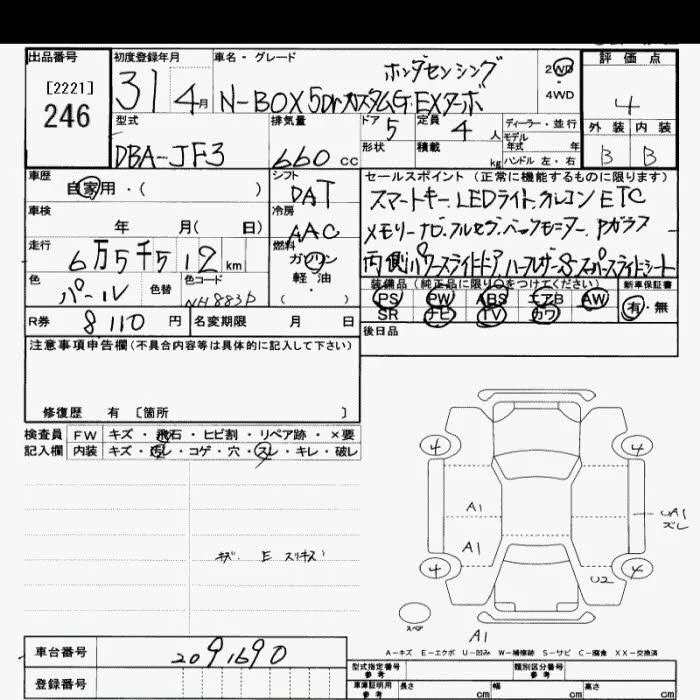 出品番号 初度登録年月 車名・グレード 評価点
[2221]
246
31 4月 ホンダセンシング 2WD
N-BOX 5Dr カスタムG・EXターボ 4WD 4
型式 排気量 ドア 定員 ディーラー・並行 外装 内装
DBA-JF3 660cc 5 4人 モデル年式 年 B B
形状 積載 kg ハンドル 左・右
車歴 シフト セールスポイント(正常に機能するものに限ります)
自家用・( ) DAT スマートキー LEDライト ETC
車検 冷房
年 月( 日) AAC メモリーナビ フルセグ
走行 燃料
6万5千512km ガソリン 両側パワースライドドア ハーフレザーS
色 色替 色コード 軽油
パール NH883P ・( )
装備品(純正品に限り○をつけてください) 新車保証書
PS PW ABS エアB AW 有・無
SR ナビ TV カワ
R券 8110円 名変期限 月 日 後日品
注意事項申告欄(不具合内容等は具体的に記入して下さい)
修復歴 有 〔箇所 〕
検査員 FW キズ・飛石・ヒビ割・リペア跡・×要
記入欄 内装 キズ・汚レ・コゲ・穴・スレ・キレ・破レ
4 4
A1 UA1
スレ
A1
4 4
U2
スペア
A1
A-キズ E-エクボ U-凹み W-補修跡 S-サビ C-腐食 XX-交換済
車台番号 2091690
登録番号
型式指定番号 参考 類別区分番号 参考
車庫証明用 参考 長さ cm 幅 cm 高さ cm